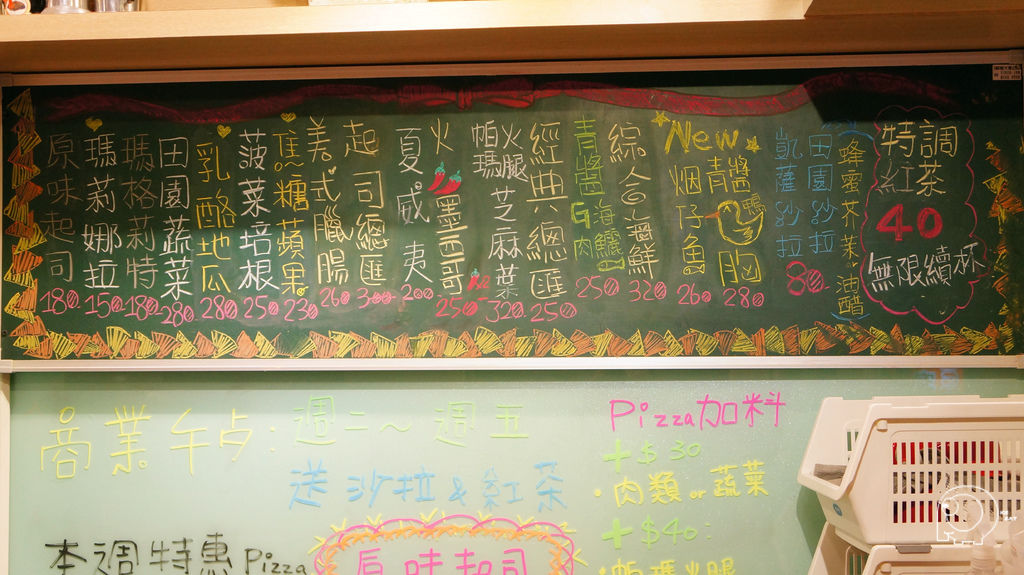 原味起司 180
瑪莉娜拉 150
瑪格莉特 180
田園蔬菜 280
乳酪地瓜 280
菠菜培根 250
焦糖蘋果 230
美式臘腸 260
起司總匯 300
夏威夷 200
火墨西哥 250
帕瑪火腿芝麻葉 320
經典總匯 250
青醬海鱺 G肉 250
綜合海鮮 320
New
烟仔魚 260
青醬鴨胸 280
凱薩沙拉
田園沙拉
80
蜂蜜芥茉。油醋
特調
紅茶
40
無限續杯
商業午占:週二～週五
送沙拉&紅茶
本週特惠Pizza
原味起司
Pizza加料
+$30
·肉類or蔬菜
+$40:
·帕瑪火腿